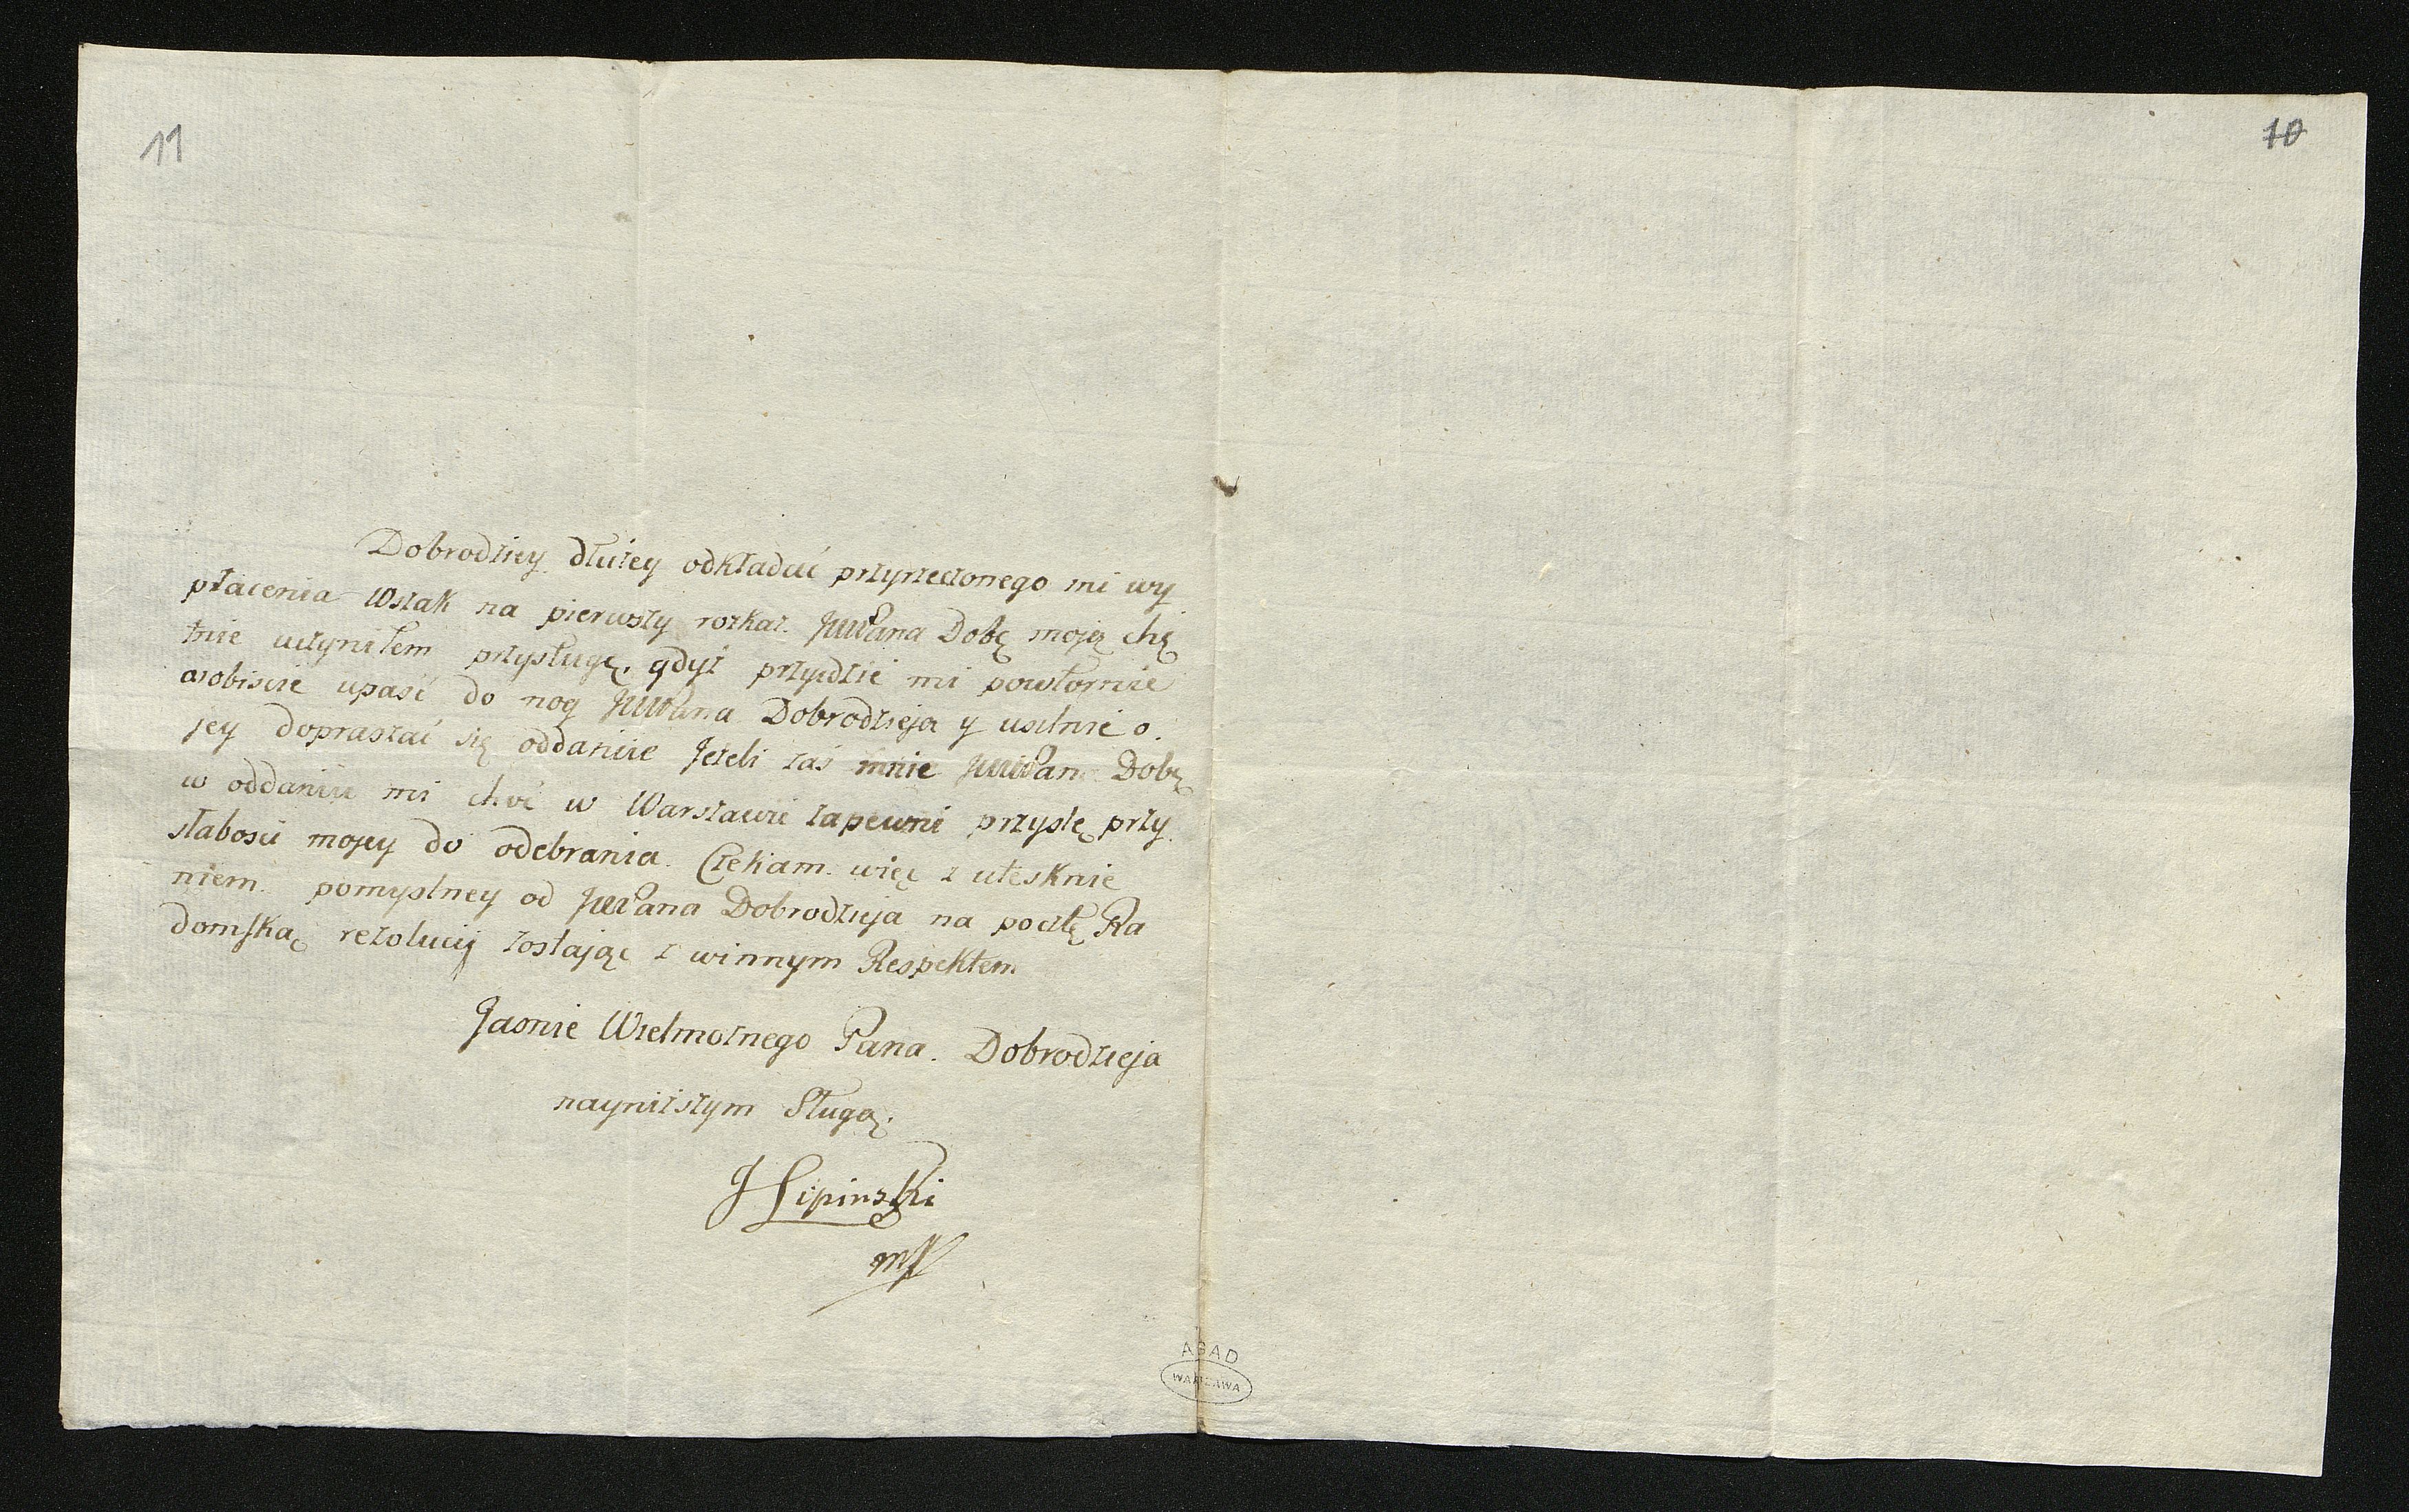 11
10
Dobrodziey dłużey odkładać przyrzeczonego mi wy
płacenia Wszak na pierwszy rozkaz JWPana Dobę moję chę
tnie uczyniłem przysługę, gdyż przyidzie mi powtornie
osobiscie upaść do nog JWPana Dobrodzieja y usilnie o
jey dopraszać się oddanie Jeżeli zaś mnie JWPan Dobę
w oddaniu mi choć w Warszawie zapewni przyslę przy
słabosci mojey do odebrania. Czekam więc z utesknie
niem pomyslney od JWPana Dobrodzieja na pocztę Ra
domską rezolucij zostając z winnym Respektem
Jasnie Wielmożnego Pana Dobrodzieja
nayniższym Sługą.
J Lipinski
mp
AGAD
WARSZAWA